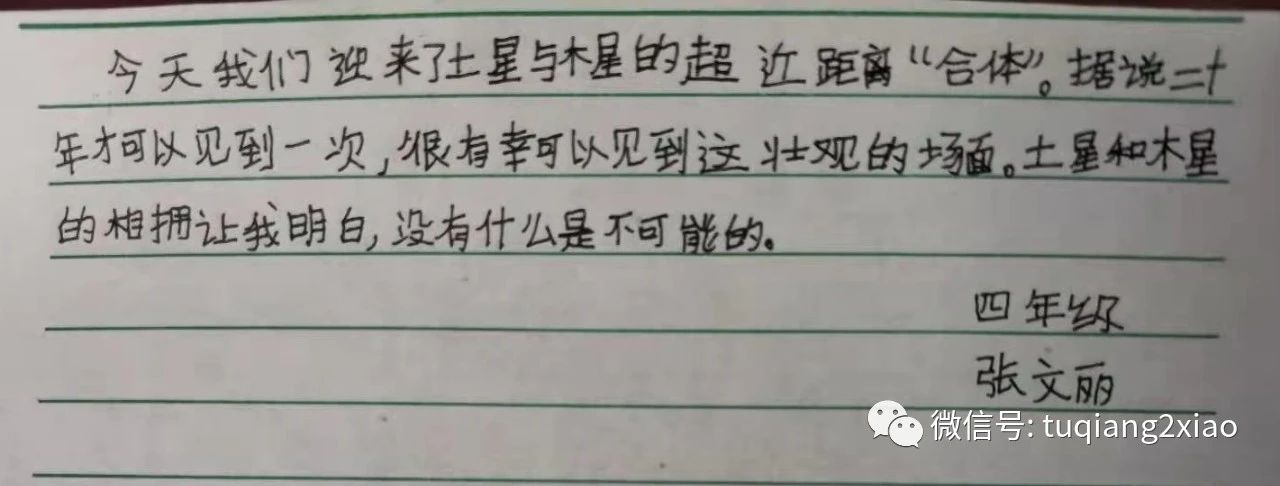 今天我们迎来了土星与木星的超近距离“合体”。据说二十
年才可以见到一次,很有幸可以见到这壮观的场面。土星和木星
的相拥让我明白,没有什么是不可能的。
四年级
张文丽
微信号: tuqiang2xiao